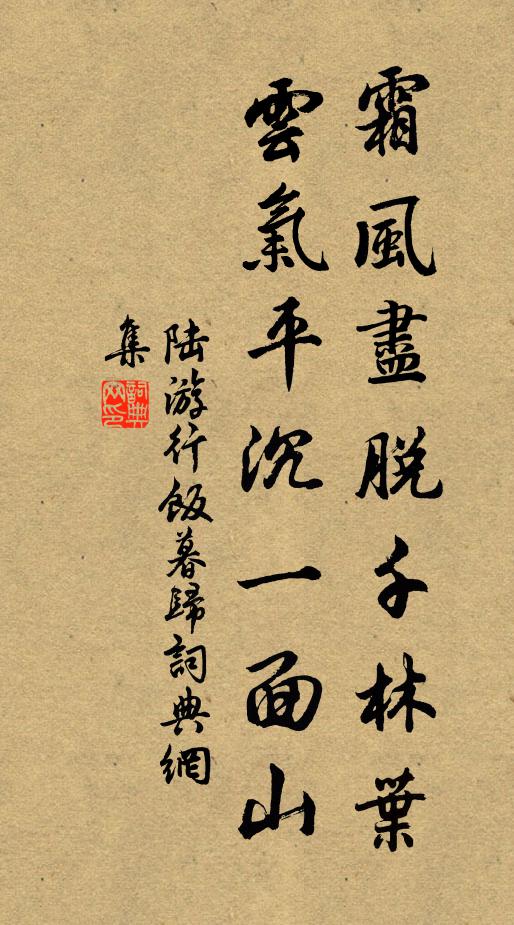 霜風盡脫千林葉
雲氣平沉一面山
陆游行飯暮歸詞典網
集
詞典
网印